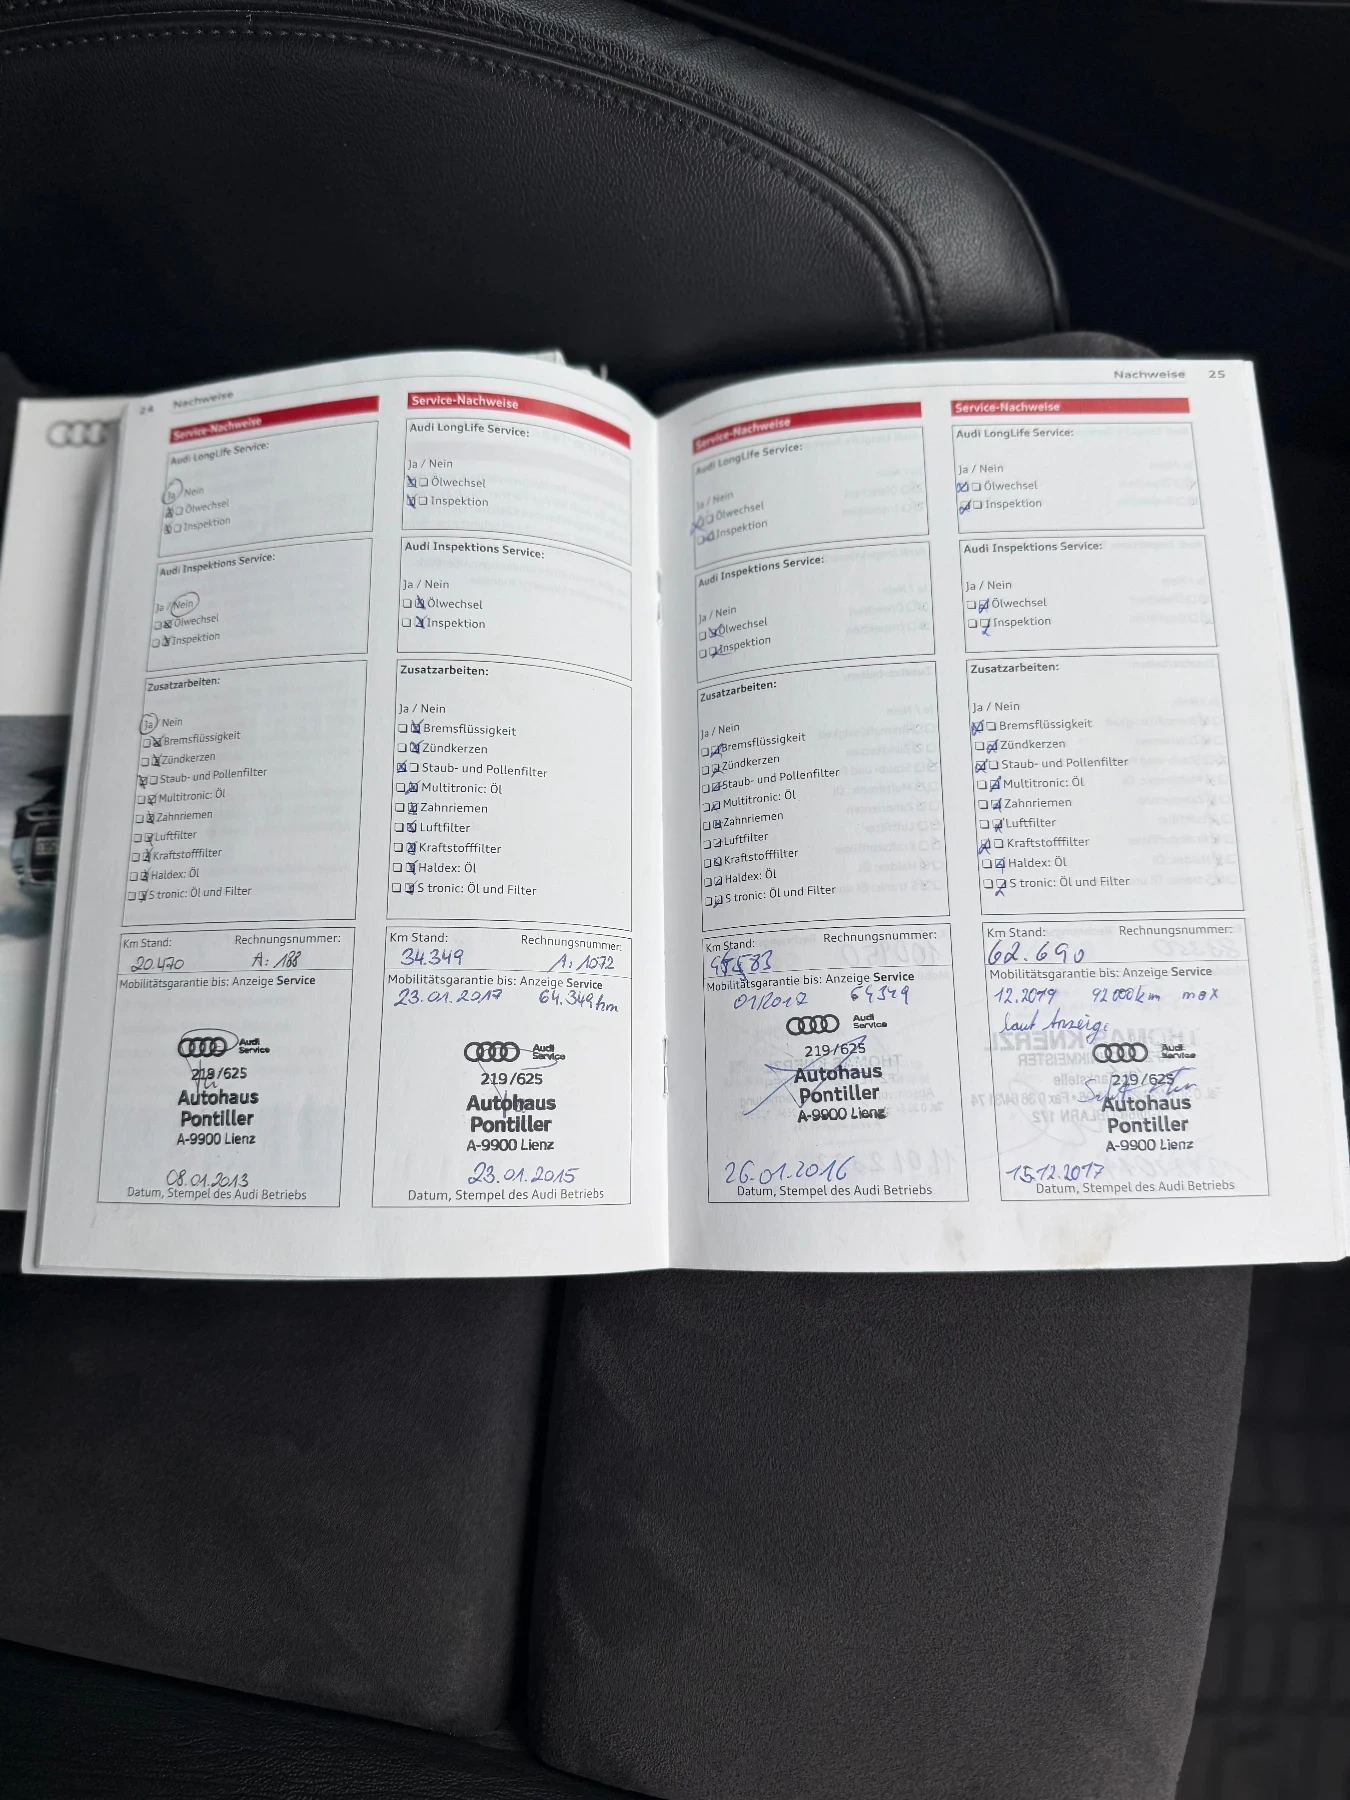 24 Nachweise
Service-Nachweise
Audi LongLife Service:
Ja / Nein
Ölwechsel
Inspektion
Audi Inspektions Service:
Ja / Nein
Ölwechsel
Inspektion
Zusatzarbeiten:
Ja / Nein
Bremsflüssigkeit
Zündkerzen
Staub- und Pollenfilter
Multitronic: Öl
Zahnriemen
Luftfilter
Kraftstofffilter
Haldex: Öl
S tronic: Öl und Filter
Km Stand: Rechnungsnummer:
20.470 A: 188
Mobilitätsgarantie bis: Anzeige Service
Audi Service
219/625
Autohaus
Pontiller
A-9900 Lienz
08.01.2013
Datum, Stempel des Audi Betriebs
Service-Nachweise
Audi LongLife Service:
Ja / Nein
Ölwechsel
Inspektion
Audi Inspektions Service:
Ja / Nein
Ölwechsel
Inspektion
Zusatzarbeiten:
Ja / Nein
Bremsflüssigkeit
Zündkerzen
Staub- und Pollenfilter
Multitronic: Öl
Zahnriemen
Luftfilter
Kraftstofffilter
Haldex: Öl
S tronic: Öl und Filter
Km Stand: Rechnungsnummer:
34.349 A: 1072
Mobilitätsgarantie bis: Anzeige Service
23.01.2017 64.349km
Audi Service
219/625
Autohaus
Pontiller
A-9900 Lienz
23.01.2015
Datum, Stempel des Audi Betriebs
Nachweise 25
Service-Nachweise
Audi LongLife Service:
Ja / Nein
Ölwechsel
Inspektion
Audi Inspektions Service:
Ja / Nein
Ölwechsel
Inspektion
Zusatzarbeiten:
Ja / Nein
Bremsflüssigkeit
Zündkerzen
Staub- und Pollenfilter
Multitronic: Öl
Zahnriemen
Luftfilter
Kraftstofffilter
Haldex: Öl
S tronic: Öl und Filter
Km Stand: Rechnungsnummer:
Mobilitätsgarantie bis: Anzeige Service
01/2017 64349
Audi Service
219/625
Autohaus
Pontiller
A-9900 Lienz
26.01.2016
Datum, Stempel des Audi Betriebs
Service-Nachweise
Audi LongLife Service:
Ja / Nein
Ölwechsel
Inspektion
Audi Inspektions Service:
Ja / Nein
Ölwechsel
Inspektion
Zusatzarbeiten:
Ja / Nein
Bremsflüssigkeit
Zündkerzen
Staub- und Pollenfilter
Multitronic: Öl
Zahnriemen
Luftfilter
Kraftstofffilter
Haldex: Öl
S tronic: Öl und Filter
Km Stand: Rechnungsnummer:
62.690
Mobilitätsgarantie bis: Anzeige Service
12.2019 92000km max
laut Anzeige
Audi Service
219/625
Autohaus
Pontiller
A-9900 Lienz
15.12.2017
Datum, Stempel des Audi Betriebs